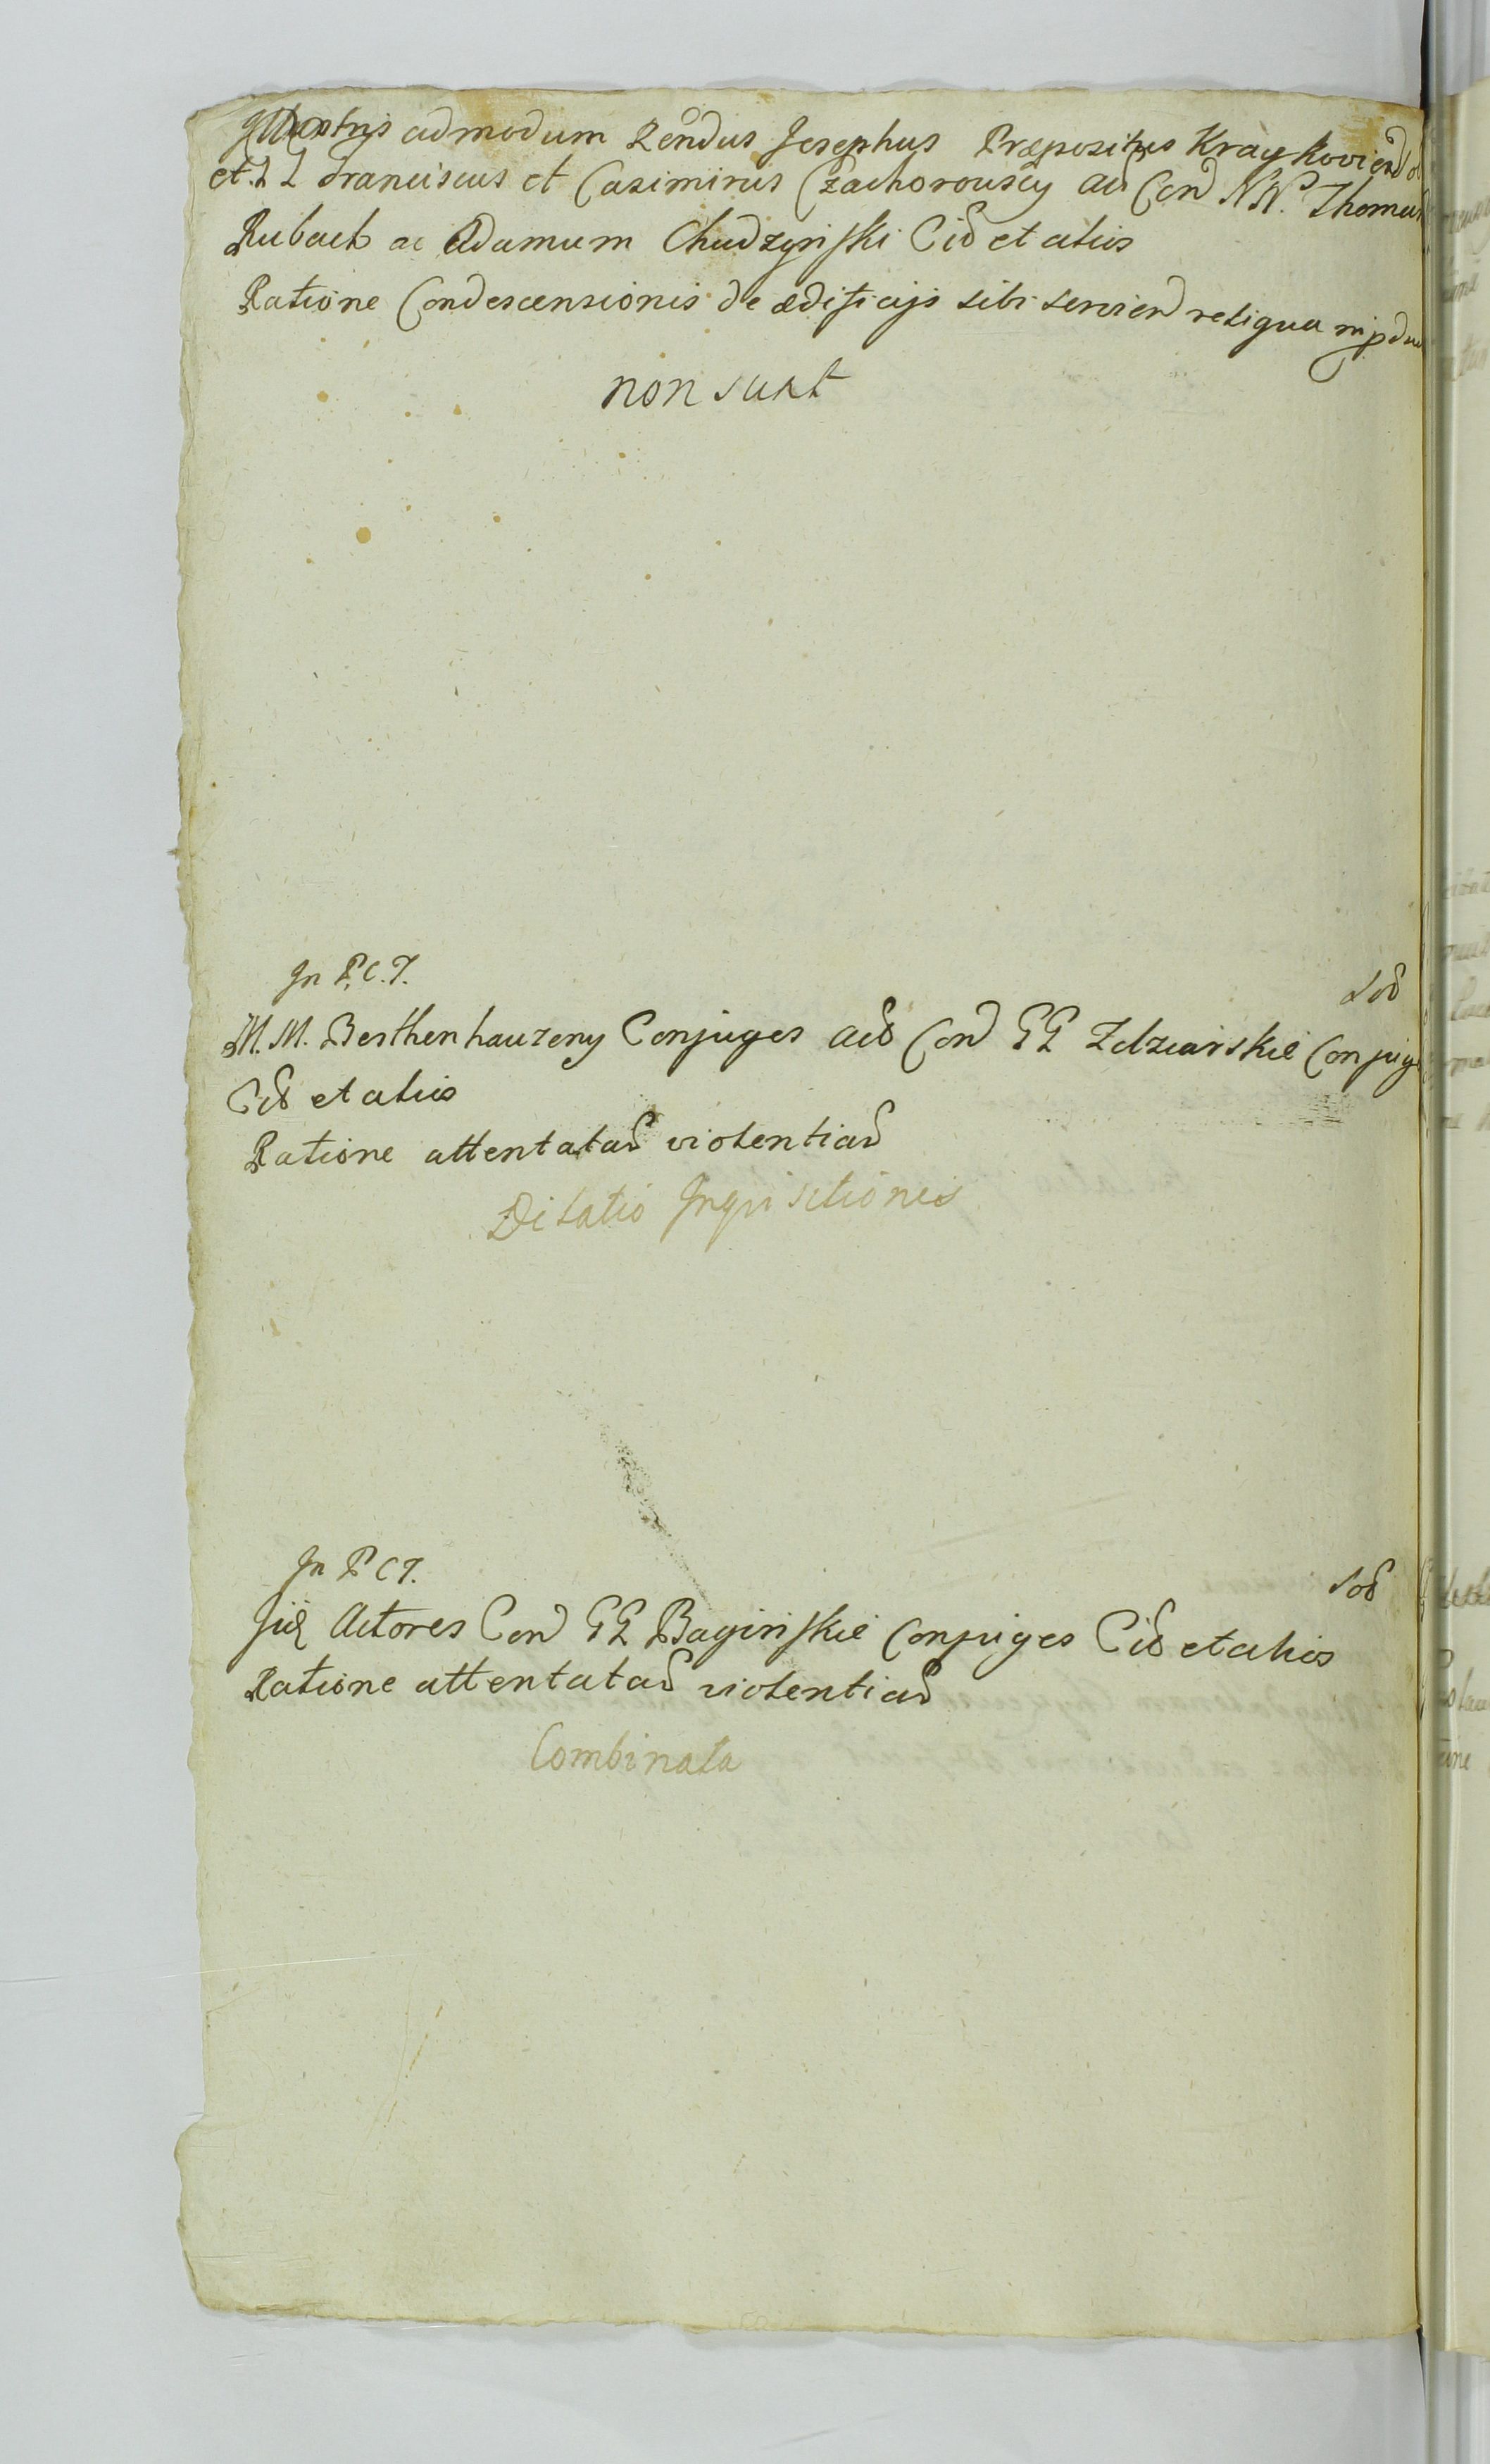 admodum Rendus Josephus Præpositus Kraykovien
et. Franciscus et Casimirus Czachorouscy ad Con NN. Thomam
Rubach ac Adamum Chudzynski Cit et alios
Ratione Condescensionis de ædificijs sibi servien reliqua
non sunt
In P.C.T.
M.M. Berthenhauzeny Conjuges act Con GG Zdziarskie Conjuges
Cit et alios
Ratione attentatar violentiar
Dilatio Inquisitionis
In P C T.
Iid Actores Con GG Baginskie Conjuges Cit et alios
Ratione attentatar violentiar
Combinata